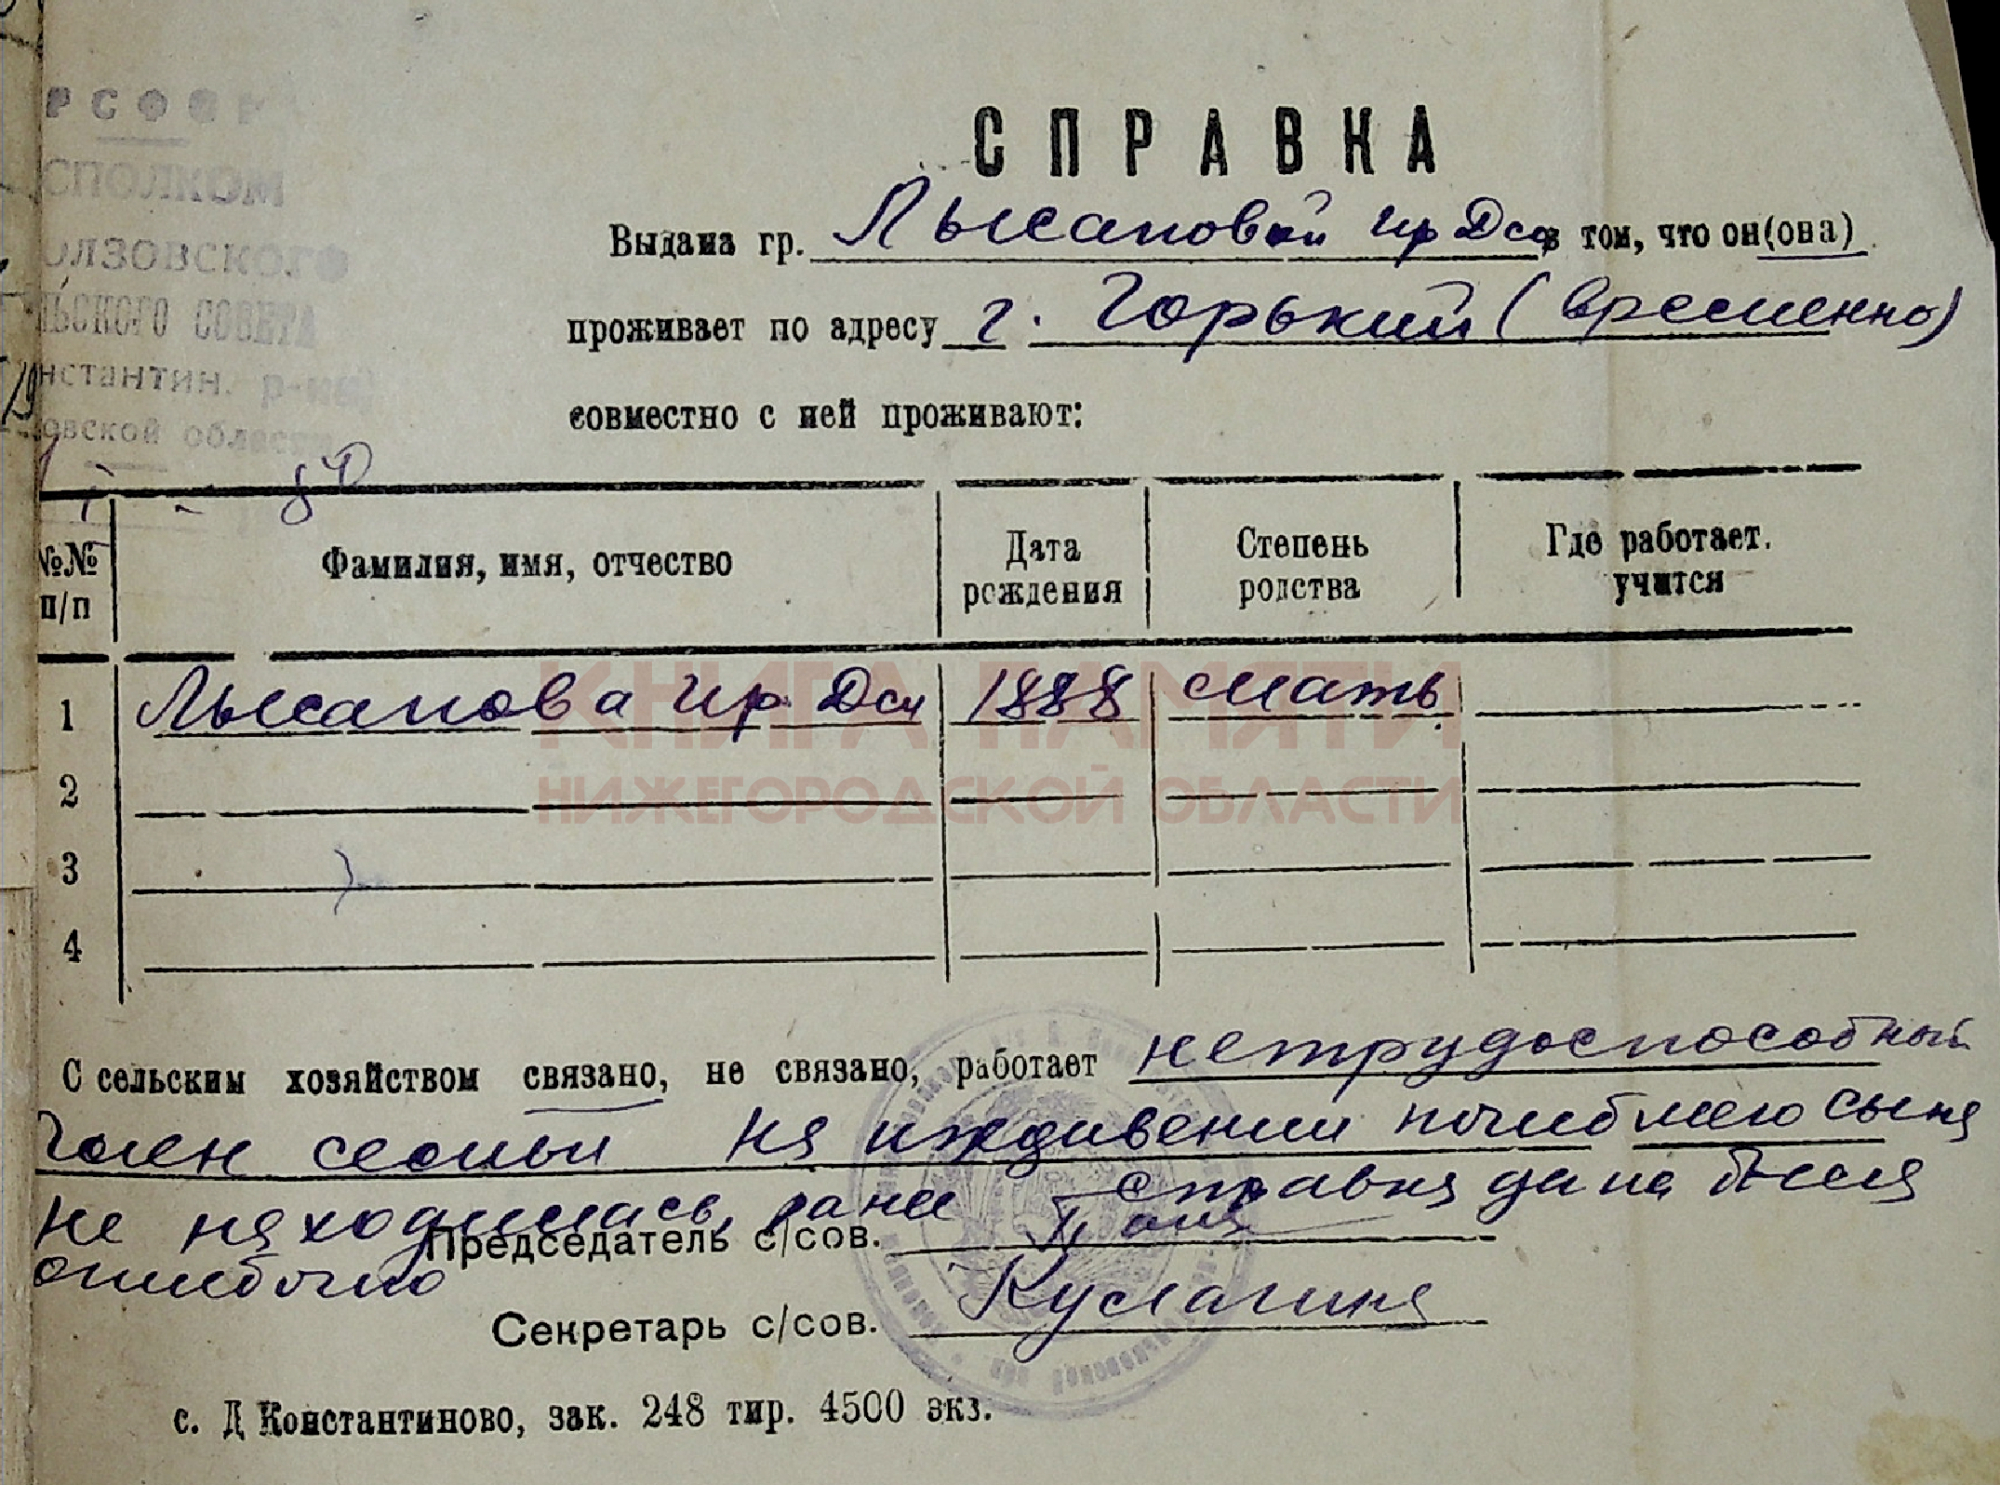 РСФСР
СПОЛКОМ
ОЛЗОВСКОГО
ЛЬСКОГО СОВЕТА
нстантин. р-на
овской области
СПРАВКА
Выдана гр. Лысаповой Ир Дса в том, что он(она)
проживает по адресу г. Горький (временно)
совместно с ней проживают:
№№ п/п
Фамилия, имя, отчество
Дата рождения
Степень родства
Где работает. учится
1 Лысапова Ир Дся 1888 мать
2
3
4
КНИГА ПАМЯТИ
НИЖЕГОРОДСКОЙ ОБЛАСТИ
С сельским хозяйством связано, не связано, работает нетрудоспособный
член семьи на иждивении погибшего сына
не находилась, ранее справка дана была
ошибочно
Председатель с/сов.
Секретарь с/сов. Кулагина
с. Д Константиново, зак. 248 тир. 4500 экз.